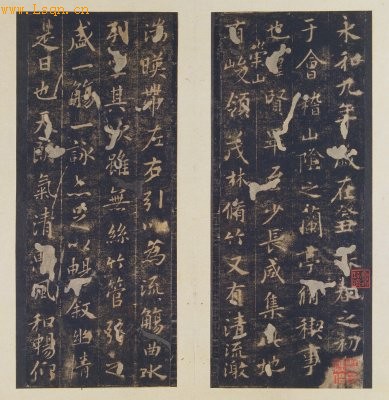 www.Lsqn.cn
永和九年歲在癸春之初
于會稽山陰之蘭亭脩禊事
也羣賢畢至少長咸集此地
崇山
有峻領茂林脩竹又有清流激
湍暎帶左右引以為流觴曲水
列坐其次雖無絲竹管弦之
盛一觴一詠亦足以暢敘幽情
是日也天朗氣清惠風和暢仰